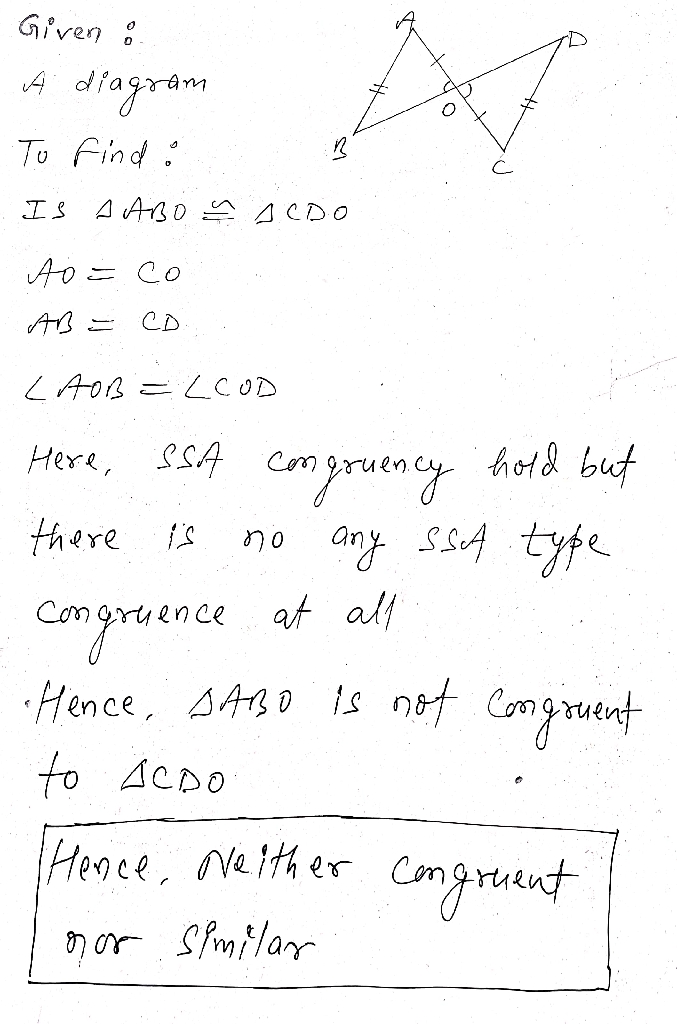 Given :
A diagram
To Find :
Is ΔABO ≅ ΔCDO
AO = CO
AB = CD
∠AOB = ∠COD
Here, SSA congruency hold but
there is no any SSA type
congruence at all
Hence, ΔABO is not Congruent
to ΔCDO
Hence, Neither congruent
nor Similar
A
D
O
B
C